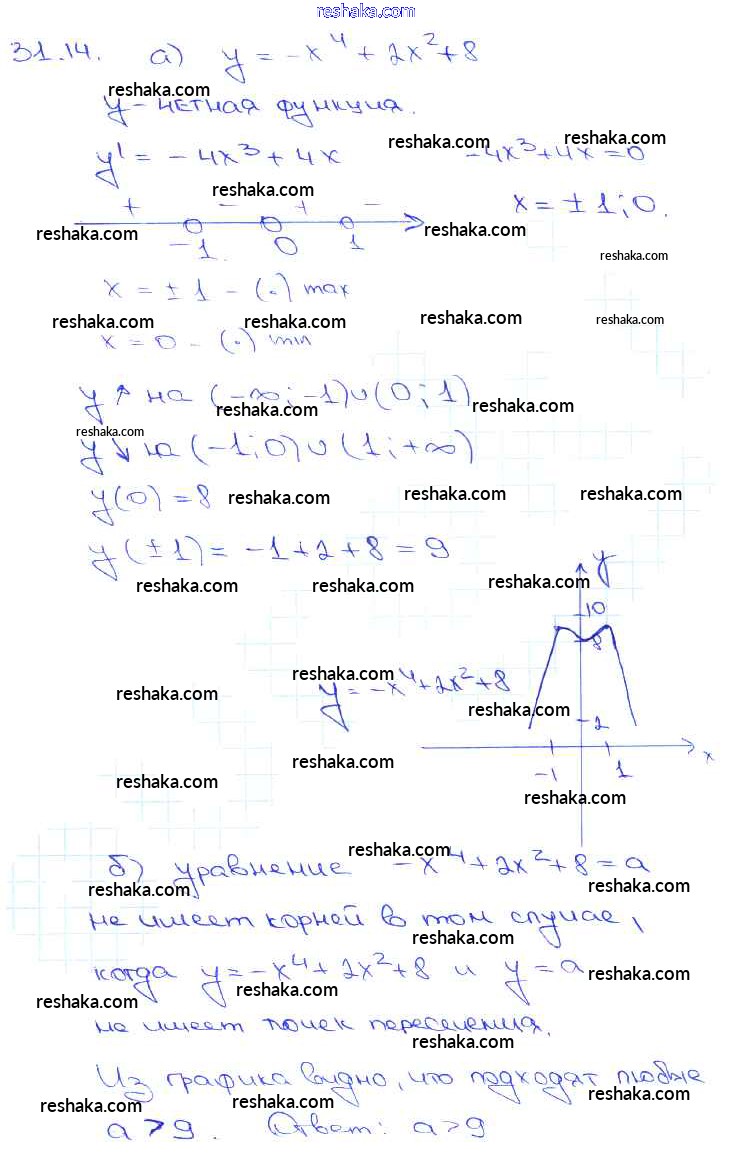 reshaka.com
31.14. а) y = -x⁴ + 2x² + 8
reshaka.com
y - четная функция.
reshaka.com reshaka.com
y' = -4x³ + 4x -4x³ + 4x = 0
reshaka.com
+ - + - x = ±1; 0.
reshaka.com reshaka.com
-1 0 1
reshaka.com
x = ±1 - (·) max
reshaka.com reshaka.com reshaka.com reshaka.com
x = 0 - (·) min
y ↑ на (-∞; -1) ∪ (0; 1)
reshaka.com reshaka.com
reshaka.com
y ↓ на (-1; 0) ∪ (1; +∞)
y(0) = 8 reshaka.com reshaka.com reshaka.com
y(±1) = -1 + 2 + 8 = 9
reshaka.com reshaka.com reshaka.com
y
10
8
reshaka.com reshaka.com
y = -x⁴ + 2x² + 8
reshaka.com
2
x
reshaka.com reshaka.com
-1 1
reshaka.com
reshaka.com
б) уравнение -x⁴ + 2x² + 8 = a
reshaka.com reshaka.com
не имеет корней в том случае,
reshaka.com
когда y = -x⁴ + 2x² + 8 и y = a
reshaka.com reshaka.com reshaka.com
не имеет точек пересечения.
reshaka.com
Из графика видно, что подходят любые
reshaka.com reshaka.com reshaka.com
a > 9. Ответ: a > 9